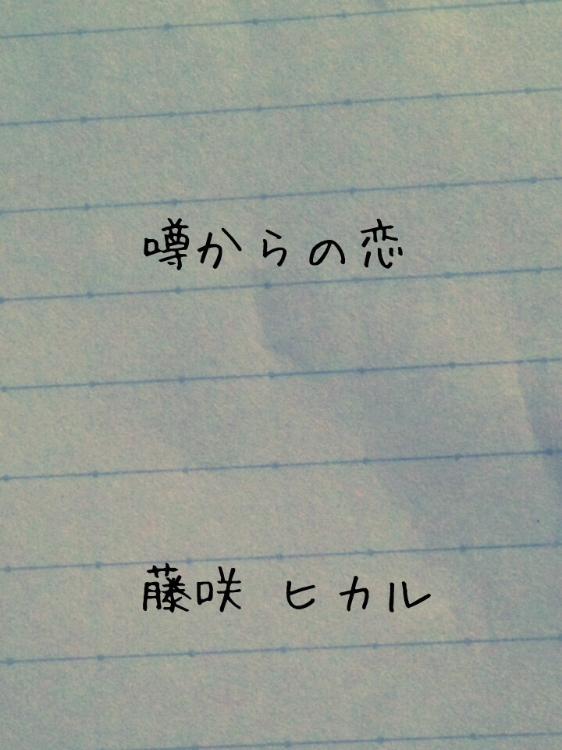 噂からの恋
藤咲 ヒカル